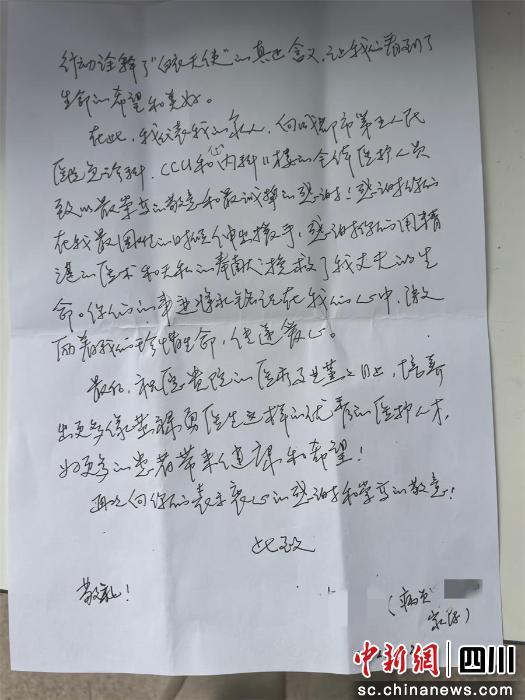 行动诠释了“白衣天使”的真正含义，让我们看到了
生命的希望和美好。
在此，我代表我的家人，向成都市第五人民
医院急诊科、CCU和心内科11楼的全体医护人员
致以最崇高的敬意和最诚挚的感谢！感谢你们
在我最困难的时候伸出援手，感谢你们用精
湛的医术和无私的奉献，挽救了我丈夫的生
命。你们的事迹将永铭记在我们心中，激
励着我们珍惜生命，传递爱心。
最后，祝医贵院的医疗事业蒸蒸日上，培养
出更多像黄 医生这样的优秀的医护人才，
为更多的患者带来健康和希望！
再次向你们表示衷心的感谢和崇高的敬意！
此致
敬礼！
（病员
家属）
中新网 四川
sc.chinanews.com